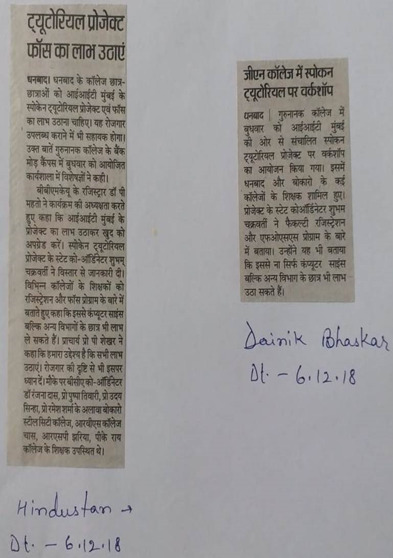 ट्यूटोरियल प्रोजेक्ट
फॉस का लाभ उठाएं
धनबाद। धनबाद के कॉलेज छात्र-
छात्राओं को आईआईटी मुंबई के
स्पोकेन ट्यूटोरियल प्रोजेक्ट एवं फॉस
का लाभ उठाना चाहिए। यह रोजगार
उपलब्ध कराने में भी सहायक होगा।
उक्त बातें गुरुनानक कॉलेज के बैंक
मोड़ कैंपस में बुधवार को आयोजित
कार्यशाला में विशेषज्ञों ने कही।
बीबीएमकेयू के रजिस्ट्रार डॉ पी
महतो ने कार्यक्रम की अध्यक्षता करते
हुए कहा कि आईआईटी मुंबई के
प्रोजेक्ट का लाभ उठाकर खुद को
अपग्रेड करें। स्पोकेन ट्यूटोरियल
प्रोजेक्ट के स्टेट को-ऑर्डिनेटर शुभम
चक्रवर्ती ने विस्तार से जानकारी दी।
विभिन्न कॉलेजों के शिक्षकों को
रजिस्ट्रेशन और फॉस प्रोग्राम के बारे में
बताते हुए कहा कि इससे कंप्यूटर साइंस
बल्कि अन्य विभागों के छात्र भी लाभ
ले सकते हैं। प्राचार्य प्रो पी शेखर ने
कहा कि हमारा उद्देश्य है कि सभी लाभ
उठाएं। रोजगार की दृष्टि से भी इसपर
ध्यान दें। मौके पर बीसीए को-ऑर्डिनेटर
डॉ रंजना दास, प्रो पुष्पा तिवारी, प्रो उदय
सिन्हा, प्रो रमेश शर्मा के अलावा बोकारो
स्टील सिटी कॉलेज, आरवीएस कॉलेज
चास, आरएसपी झरिया, पीके राय
कॉलेज के शिक्षक उपस्थित थे।
Hindustan →
Dt. - 6.12.18
जीएन कॉलेज में स्पोकन
ट्यूटोरियल पर वर्कशॉप
धनबाद | गुरुनानक कॉलेज में
बुधवार को आईआईटी मुंबई
की ओर से संचालित स्पोकन
ट्यूटोरियल प्रोजेक्ट पर वर्कशॉप
का आयोजन किया गया। इसमें
धनबाद और बोकारो के कई
कॉलेजों के शिक्षक शामिल हुए।
प्रोजेक्ट के स्टेट कोऑर्डिनेटर शुभम
चक्रवर्ती ने फैकल्टी रजिस्ट्रेशन
और एफओएसएस प्रोग्राम के बारे
में बताया। उन्होंने यह भी बताया
कि इससे ना सिर्फ कंप्यूटर साइंस
बल्कि अन्य विभाग के छात्र भी लाभ
उठा सकते हैं।
Dainik Bhaskar
Dt. - 6.12.18